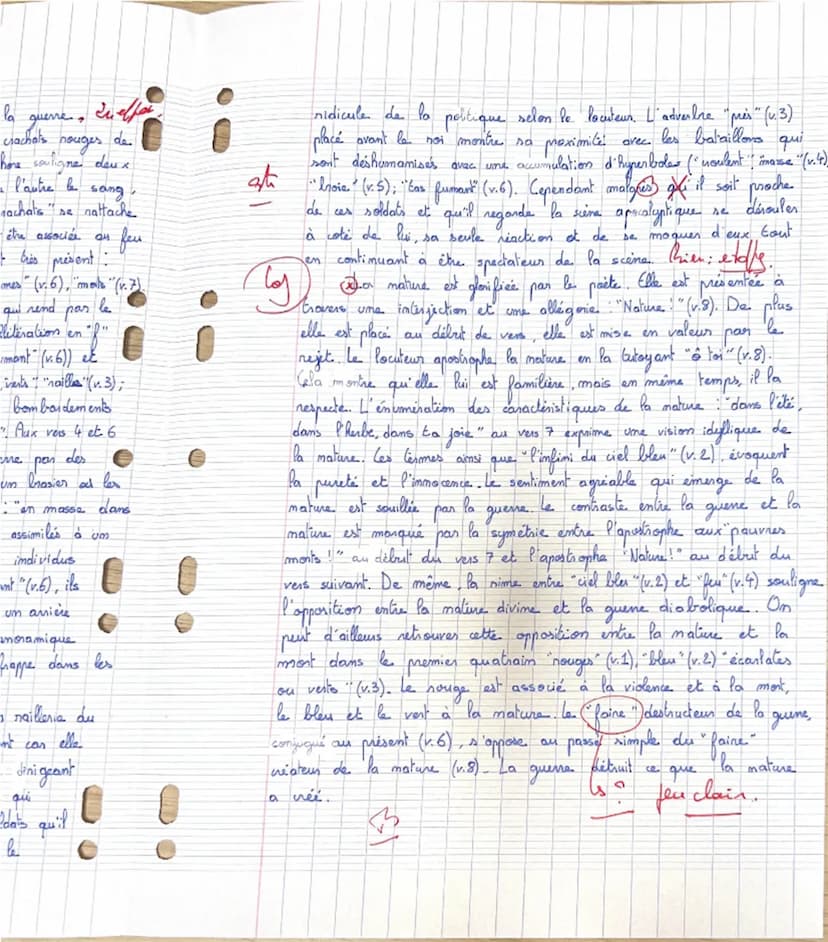 la guerre. En effet,
crachats rouges de
souligne deux
l'autre le sang,
crachats" se rattache
être associée au feu
très présent :
mes" (v.6), "morts" (v.7)
qui rend par le
allitération en "f"
mant" (v.6)) et
verts" "raille" (v.3);
bombardements
". Aux vers 4 et 6
par des
un brasier où les
: "en masse dans
assimilés à un
individus
ant" (v.6), ils
un arrière
anoramique
frappe dans les
raillerie du
car elle
dirigeant
qui
ldats qu'il
le
ridicule de la politique selon le locuteur. L'adverbe "près" (v.3)
placé avant le roi montre sa proximité avec les bataillons qui
sont déshumanisés avec une accumulation d'hyperboles ("croulent"; "masse" (v.4)
"broie" (v.5); "tas fumant" (v.6). Cependant malgrès qu'il soit proche
de ces soldats et qu'il regarde la scène apocalyptique se dérouler
à coté de lui, sa seule réaction et de se moquer d'eux tout
en continuant à être spectateur de la scène. Bien : étoffé.
La nature est glorifiée par le poète. Elle est présentée à
travers une interjection et une allégorie : "Nature !" (v.8). De plus
elle est placé au début de vers, elle est mise en valeur par le
rejet. Le locuteur apostrophe la nature en la tutoyant "ô toi" (v.8).
Cela montre qu'elle lui est familière, mais en même temps, il la
respecte. L'énumération des caractéristiques de la nature : "dans l'été,
dans l'herbe, dans ta joie" au vers 7 exprime une vision idyllique de
la nature. Ces termes ainsi que "l'infini du ciel bleu" (v.2), évoquent
la pureté et l'innocence. Le sentiment agréable qui émerge de la
nature est souillée par la guerre. Le contraste entre la guerre et la
nature est marqué par la symétrie entre l'apostrophe aux "pauvres
morts !" au début du vers 7 et l'apostrophe "Nature !" au début du
vers suivant. De même, la rime entre "ciel bleu" (v.2) et "feu" (v.4) souligne
l'opposition entre la nature divine et la guerre diabolique. On
peut d'ailleurs retrouver cette opposition entre la nature et la
mort dans le premier quatrain "rouges" (v.1), "bleu" (v.2) "écarlates
ou verts" (v.3). Le rouge est associé à la violence et à la mort,
le bleu et le vert à la nature. Le "faire" destructeur de la guerre,
conjugué au présent (v.6), s'oppose au passé simple du "faire"
créateur de la nature (v.8). La guerre détruit ce que la nature
a créé.
peu clair.